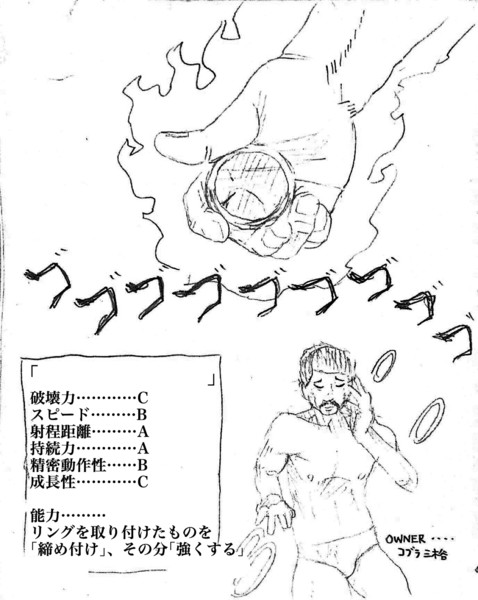 ゴゴゴゴゴゴゴゴ
「　　　　　　　　　」
破壊力…………C
スピード………B
射程距離………A
持続力…………A
精密動作性……B
成長性…………C
能力………
リングを取り付けたものを
「締め付け」、その分「強くする」
OWNER ‥‥
コブラ三裕